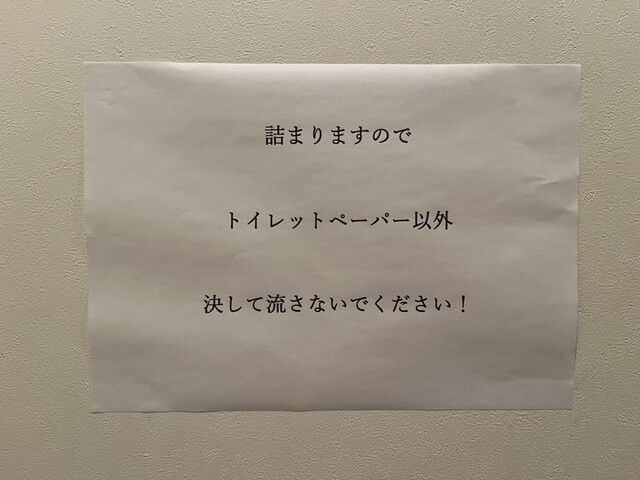 詰まりますので
トイレットペーパー以外
決して流さないでください！